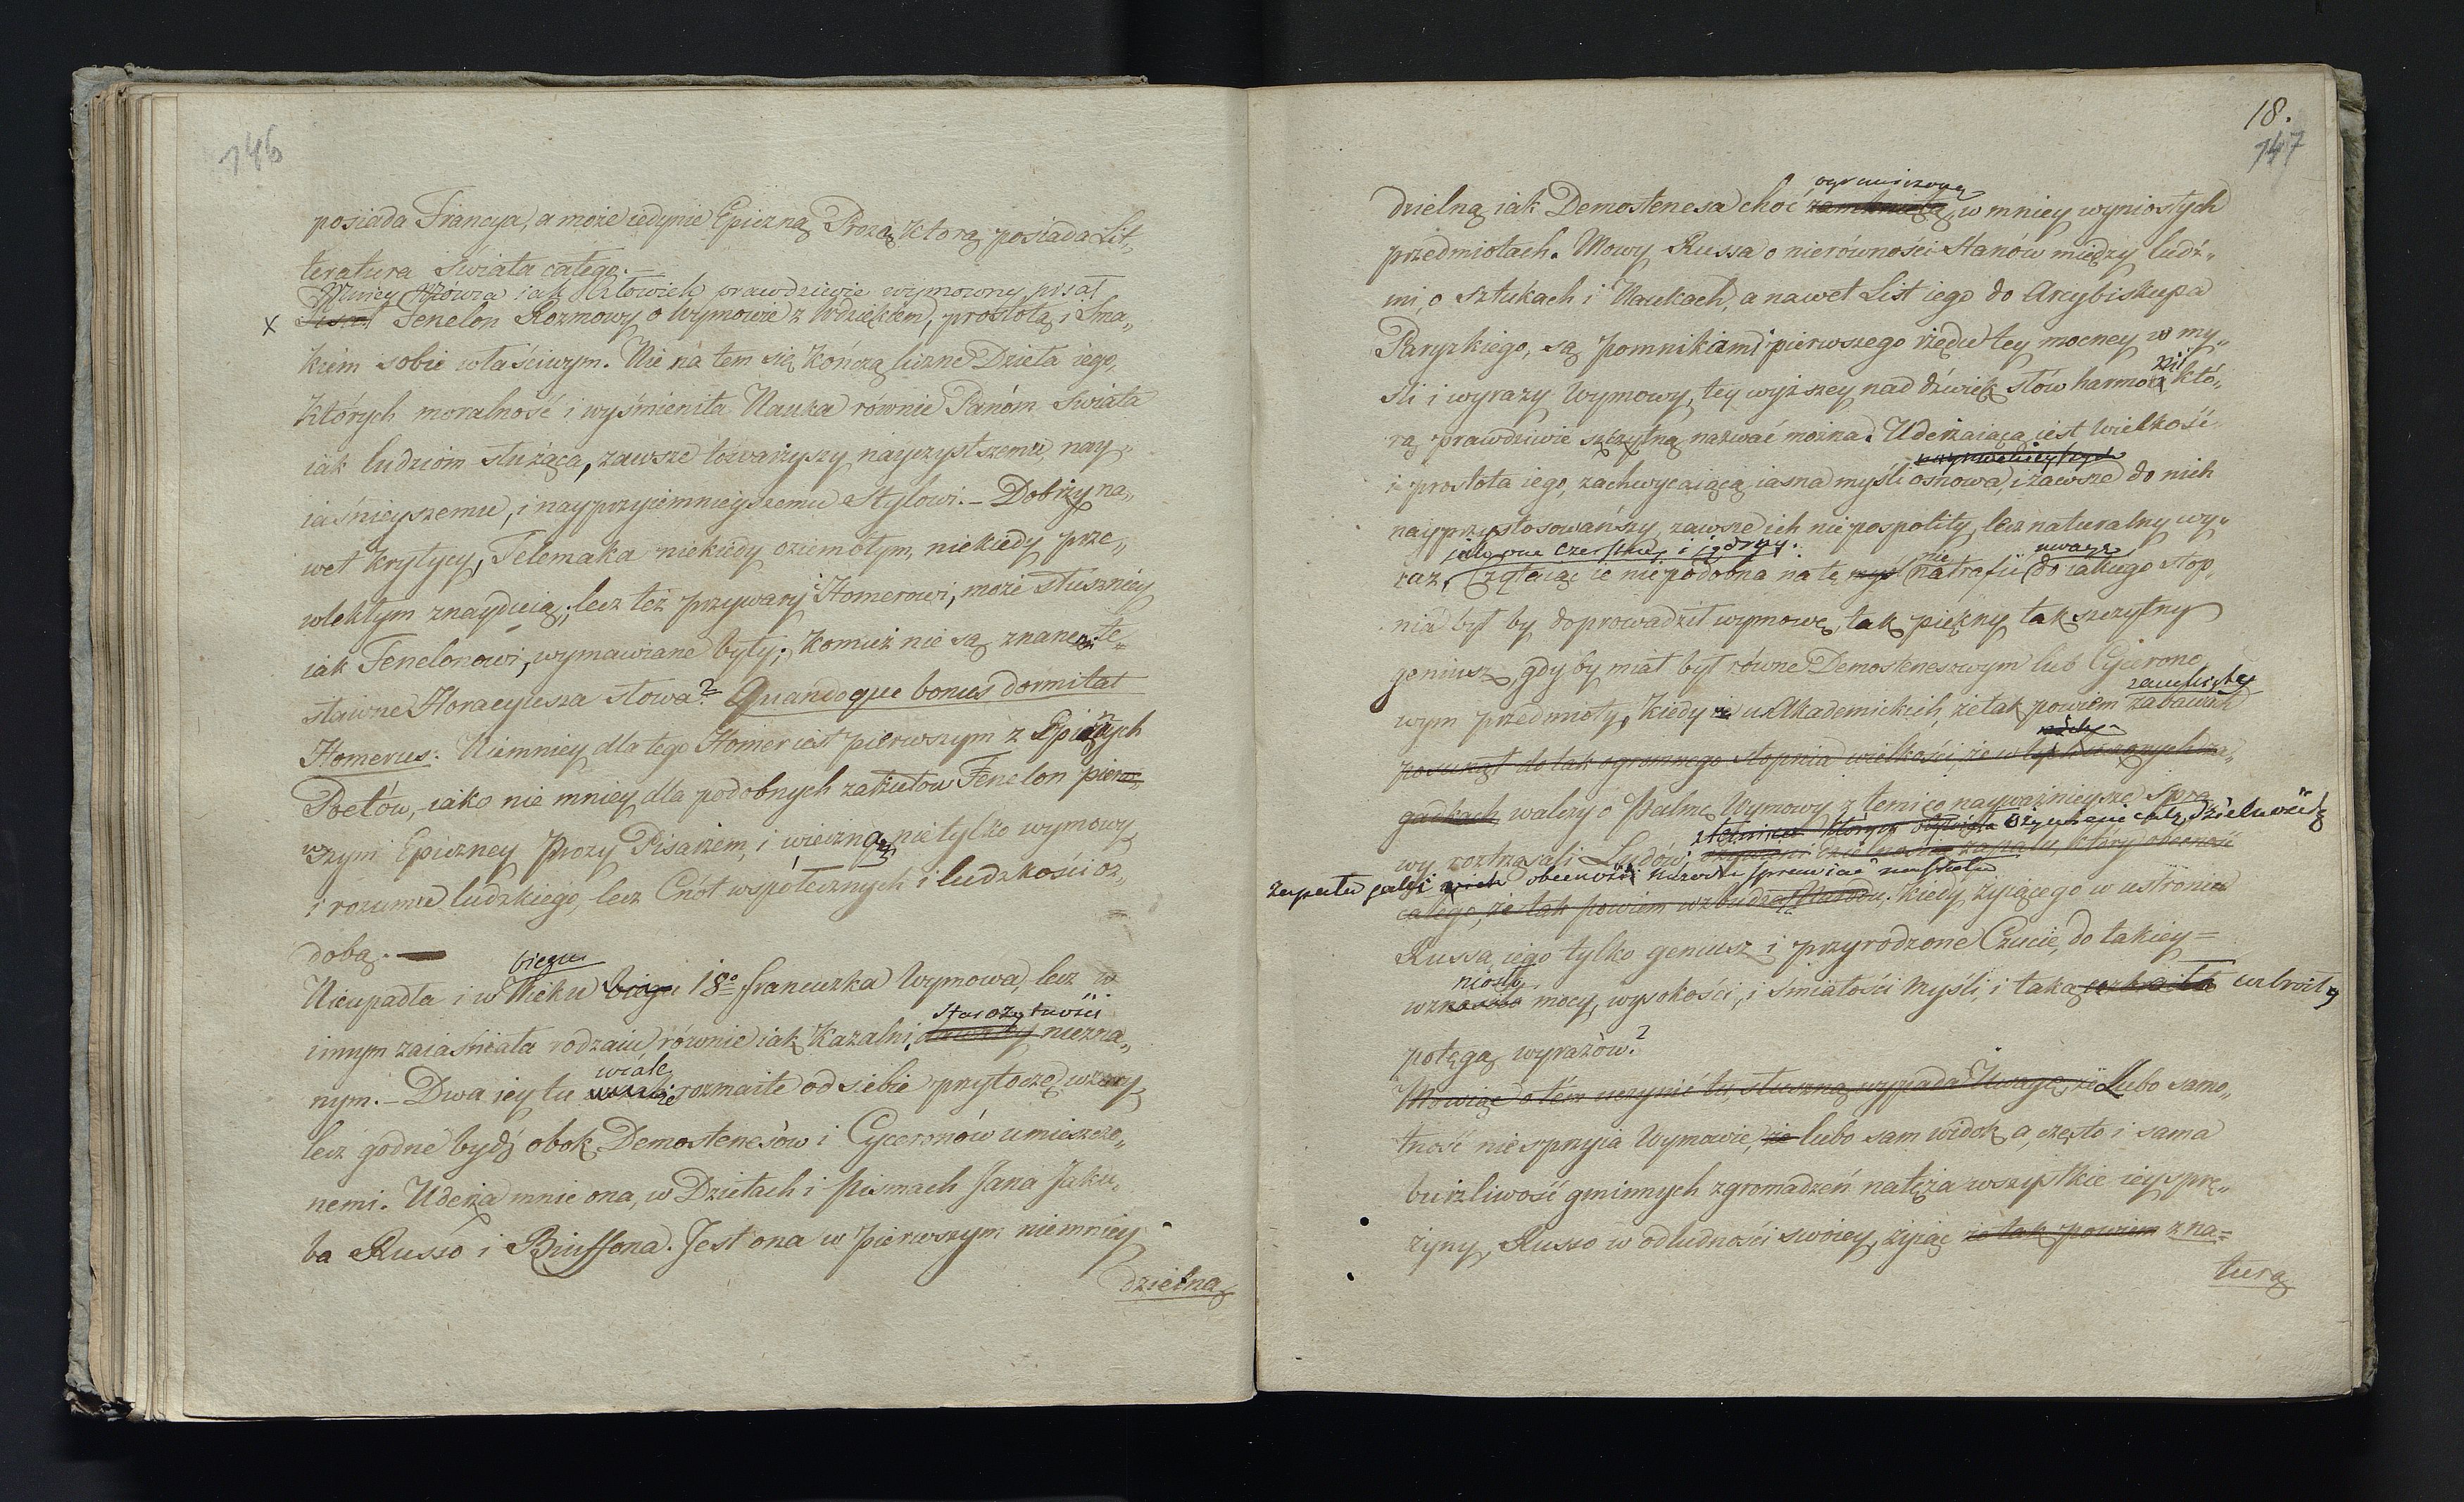 146
posiada Francya, a może iedynie Epiczną Prozą, którą posiada Lit„
teratura świata całego.
Mniey Mówca iak Człowiek prawdziwie wymowny pisał
x Pisał Fenelon Rozmowy o Wymowie z Wdziękiem, prostotą i Sma„
kiem sobie właściwym. Nie na tem się kończą liczne Dzieła iego,
których moralność i wyśmienita Nauka równie Panóm świata
iak ludziom służąca, zawsze towarzyszy nayczystszemu, nay„
iaśnieyszemu, i nayprzyiemnieyszemu Stylowi. – Dobrzy na„
wet krytycy, Telemaka niekiedy oziembłym, niekiedy prze„
wlekłym znayduią; lecz też przywary Homerowi, może słuszniey
iak Fenelonowi, wymawiane były; komuż nie są znane te„
sławne Horacyusza słowa? Quandoque bonus dormitat
Homerus. Niemniey dla tego Homer iest pierwszym z Epicznych
Poetów, iako nie mniey dla podobnych zarzutow Fenelon pierw„
wszym Epiczney Prozy Pisarzem, i wieczną nie tylko wymowy
i rozumu ludzkiego, lecz Cnót współecznych i ludzkości oz„
dobą. —
biegu
Nieupadła i w Wieku biegu 18o francuzka Wymowa, lecz w
starożytności
innym zaiaśniała rodzaiu, równie iak Kazalni, niezna„
wcale
nym. – Dwa iey tu rozmaite od siebie przytoczę wzory,
lecz godne bydź obok Demostenesów i Cyceronów umieszczo„
nemi. Uderza mnie ona, w Dziełach i pismach Jana Jaku„
ba Russo i Biuffona. Jest ona w pierwszym niemniey
dzielna
18.
147
ograniczoną
dzielną iak Demostenesa choć zamkniętą w mniey wyniosłych
przedmiotach. Mowy Russa o nierówności Stanów między ludź„
mi, o sztukach i Naukach, a nawet List iego do Arcybiskupa
Paryzkiego, są pomnikami pierwszego rzędu tey mocney w my„
śli i wyrazy Wymowy, tey wyższey nad dźwięk słów harmonii któ„
rą prawdziwie szczytną nazwać można. Uderzaiąca iest wielkość
i prostota iego, zachwycaiąca iasna myśli osnowa, i zawsze do nich
nayprzystosowańszy, zawsze ich niepospolity, lecz naturalny wy„
czerstwy i jędrny. nie uwagę
raz. Czytaiąc ie niepodobna na tę myśl natrafić do iakiego stop„
nia był by doprowadził wymowę, tak piękny tak szczytny
geniusz, gdy by miał był równe Demostenesowym lub Cycerono„
wym przedmioty, kiedy w Akademickich, że tak powiem zabawach
posunął do tak ogromnego stopnia wielkości, że w tych
gadkach walczy o Palmę Wymowy z temi co nayważnieysze spra„
ożywieni całą dzielnością
wy roztrząsali Ludów, zapału, który obecność
zapału iaki obecność Narodu sprawiać musiała
całego, że tak powiem wzbudza Narodu, kiedy żyiącego w ustroniu
Russa, iego tylko geniusz i przyrodzone Czucie, do takiey=
niosło
wznosiło mocy, wysokości, i śmiałości Myśli, i taką uzbroiły
potęgą wyrazów?
Mówiąc o tém uczynić tu, słuszną wypada Uwagę, że Lubo samo„
tność niesprzyia Wymowie, że lubo sam widok, a często i sama
burzliwość gminnych zgromadzeń natęża wszystkie iey sprę„
żyny, Russo w odludności swoiey, żyiąc że tak powiem z na=
turą